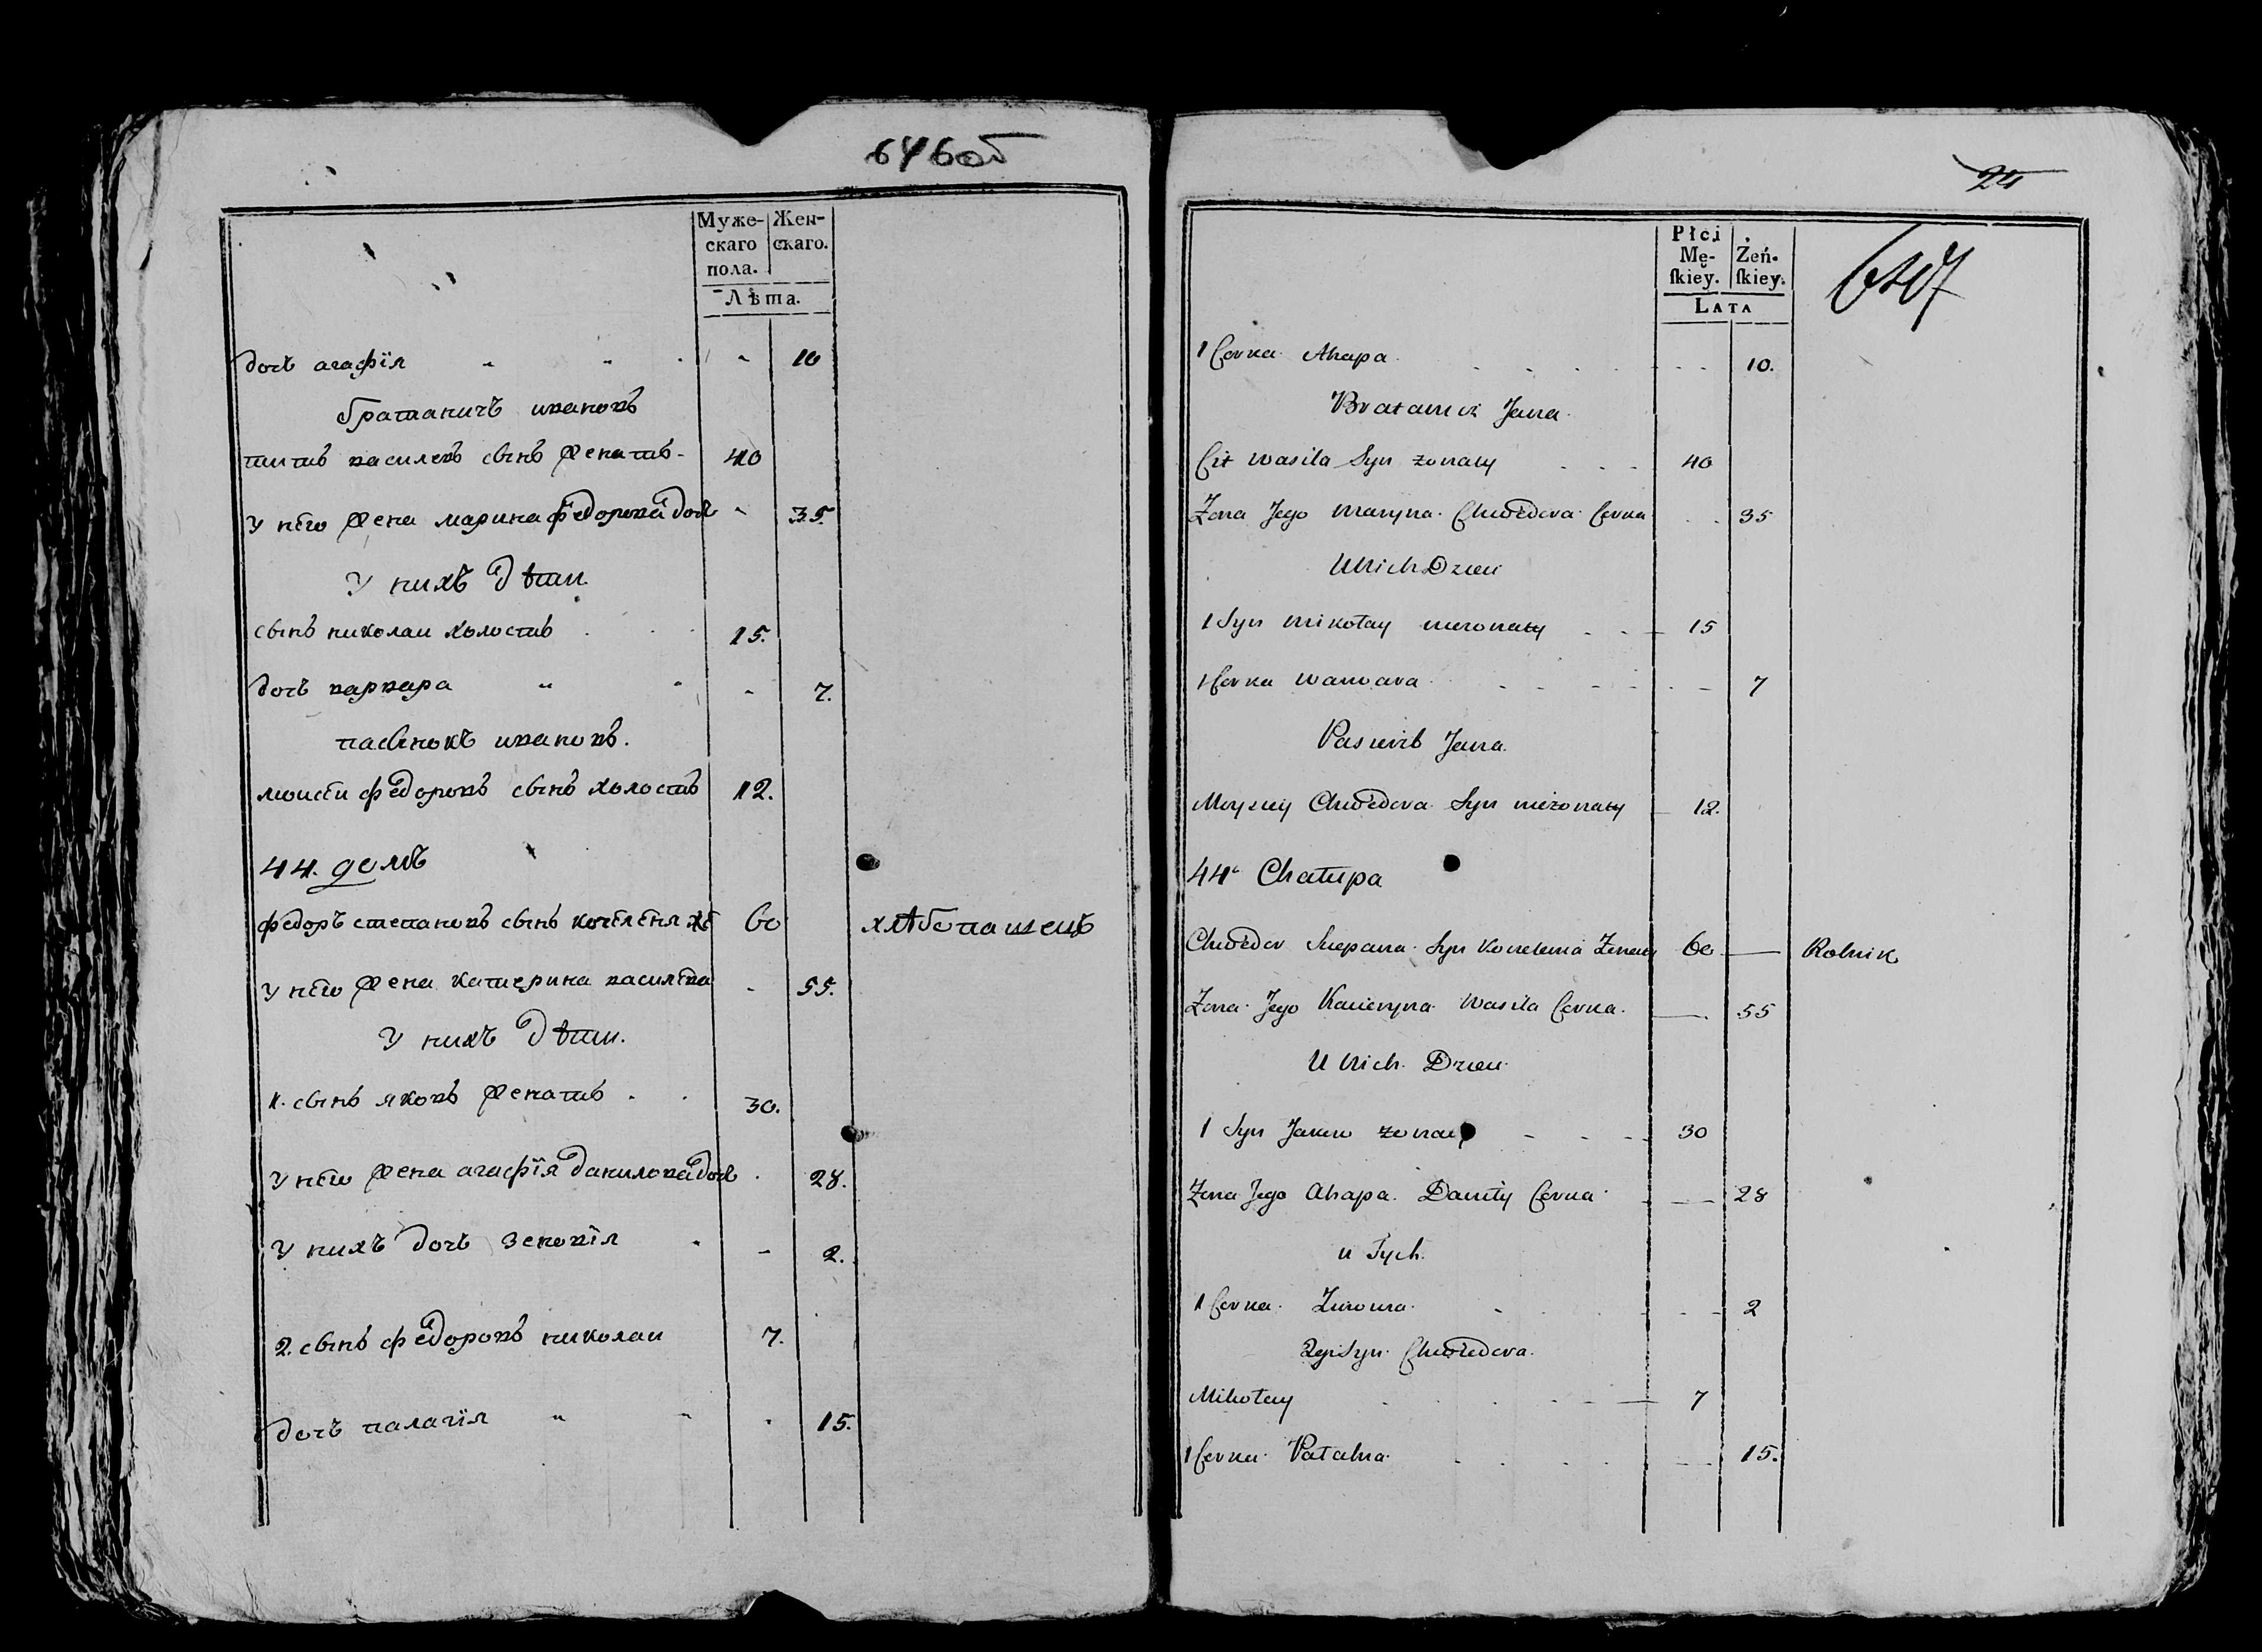 646об
Муже- Жен-
скаго скаго.
пола.
Лѣта.
дочь агафїя - 10
братаничъ ивановъ
титъ василевъ сынъ женатъ 40
у него жена марина федорова дочь - 35.
У нихъ дѣти.
сынъ николаи холостъ 15.
дочь варвара - 7.
пасынокъ ивановъ.
моисеи федоровъ сынъ холостъ 12.
44. домъ
федоръ степановъ сынъ 60 хлѣбопашецъ
у него жена катерина васил - 55.
У нихъ дѣти.
1. сынъ яковъ женатъ 30.
у него жена агафїя данилова дочь 28.
у нихъ дочь зеновїя - 2.
2. сынъ федоровъ николаи 7.
дочь палагїя 15.
24
647
Płci
Mę- Żeń-
ſkiey. ſkiey.
LATA
1 Corka Ahapa 10.
Bratanicz Jana
Cit Wasila Syn żonaty 40
Zona Jego Maryna Chwedora Corka 35
U Nich Dzieci
1 Syn Mikołay nieżonaty 15
1 Corka Warwara 7
Pasierb Jana
Moyzey Chwedora Syn nieżonaty 12.
44 Chałupa
Chwedor Stepana Syn Żonaty 60 Rolnik
Zona Jego Katieryna Wasila Corka 55
U Nich Dzieci
1 Syn Jakow żonaty 30
Zona Jego Ahapa Daniły Corka 28
U Tych
1 Corka 2
2gi Syn Chwedora
Mikołay 7
1 Corka Pałahia 15.